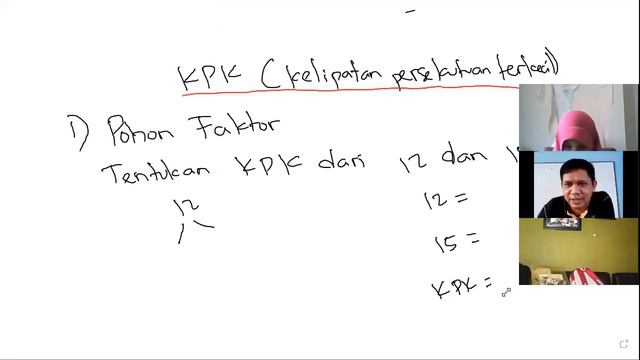 KPK (kelipatan persekutuan terkecil)
1) Pohon Faktor
Tentukan KPK dari 12 dan
12
12 =
15 =
KPK =